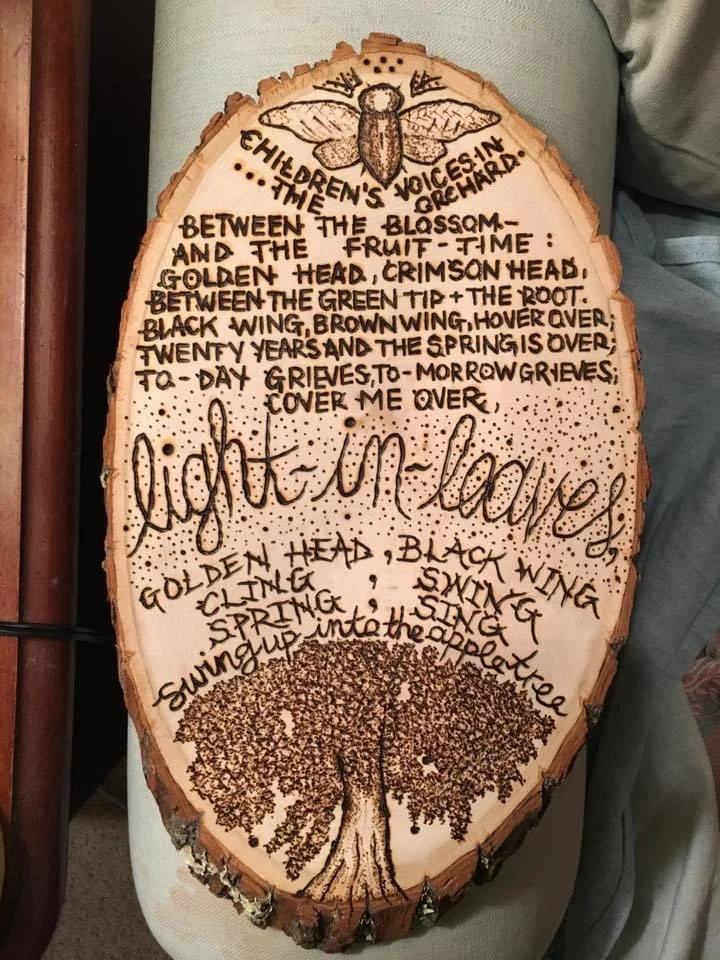 CHILDREN'S VOICES IN
...THE ORCHARD.
BETWEEN THE BLOSSOM-
AND THE FRUIT-TIME:
GOLDEN HEAD, CRIMSON HEAD,
BETWEEN THE GREEN TIP + THE ROOT.
BLACK WING, BROWN WING, HOVER OVER;
TWENTY YEARS AND THE SPRING IS OVER;
TO-DAY GRIEVES, TO-MORROW GRIEVES,
COVER ME OVER,
light-in-leaves,
GOLDEN HEAD, BLACK WING
CLING, SWING
SPRING, SING
swing up into the appletree